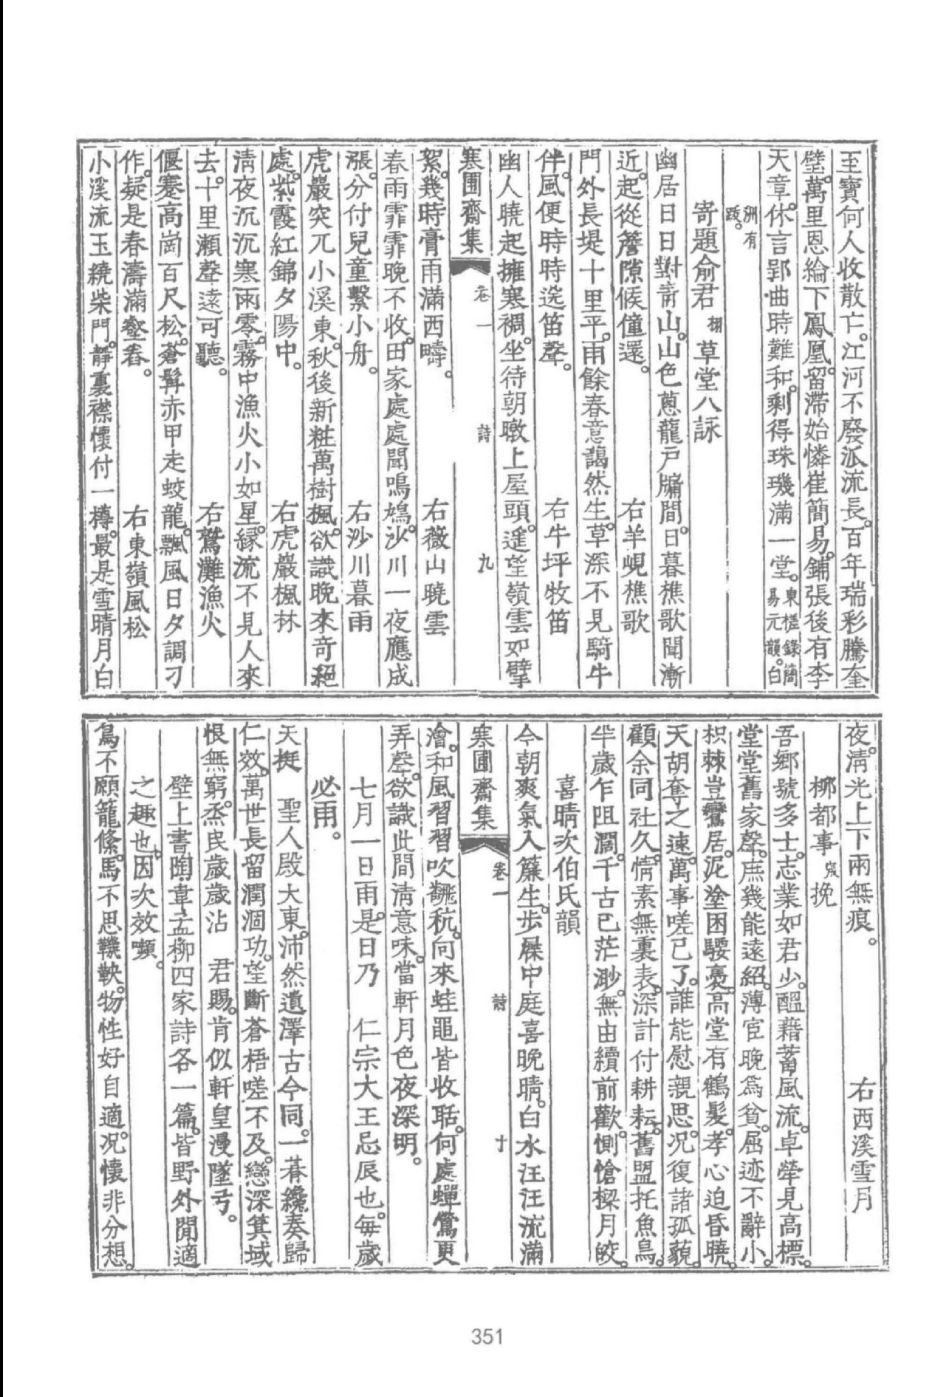 至寶何人收散亡。江河不廢派流長。百年瑞彩騰奎
壁。萬里恩綸下鳳凰。留滯始憐崔簡易。鋪張後有李
天章。休言郢曲時難和。剩得珠璣滿一堂。東槎錄簡易元韻。白
洲有跋。
寄題俞君 棚 草堂八詠
幽居日日對靑山。山色蔥蘢戶牖間。日暮樵歌聞漸
近。起從簷隙候僮還。 右羊峴樵歌
門外長堤十里平。雨餘春意藹然生。草深不見騎牛
伴。風便時時送笛聲。 右牛坪牧笛
幽人曉起擁寒裯。坐待朝暾上屋頭。遙望嶺雲如擘
寒圃齋集 卷一 詩 九
絮。幾時膏雨滿西疇。 右薇山曉雲
春雨霏霏晚不收。田家處處聞鳴鳩。沙川一夜應成
漲。分付兒童繫小舟。 右沙川暮雨
虎巖突兀小溪東。秋後新粧萬樹楓。欲識晚來奇絕
處。紫霞紅錦夕陽中。 右虎巖楓林
淸夜沉沉寒雨零。霧中漁火小如星。緣流不見人來
去。十里瀨聲遠可聽。 右鷰灘漁火
偃蹇高崗百尺松。蒼髯赤甲走蛟龍。飄風日夕調刁
作。疑是春濤滿壑舂。 右東嶺風松
小溪流玉繞柴門。靜裏襟懷付一樽。最是雪晴月白
夜。淸光上下兩無痕。 右西溪雪月
梛都事 挽
吾鄕號多士。志業如君少。醞藉蓄風流。卓犖見高標。
堂堂舊家聲。庶幾能遠紹。薄宦晚爲貧。屈迹不辭小。
枳棘豈鸞居。泥塗困騕褭。高堂有鶴髮。孝心迫昏曉。
天胡奪之速。萬事嗟已了。誰能慰親思。况復諸孤藐。
顧余同社久。情素無裏表。深計付耕耘。舊盟托魚鳥。
半歲乍阻濶。千古已茫渺。無由續前歡。惻愴樑月皎。
喜晴次伯氏韻
今朝爽氣入簾生。步屧中庭喜晚晴。白水汪汪流滿
寒圃齋集 卷一 詩 十
澮。和風習習吹飜秔。向來蛙黽皆收聒。何處蟬鶯更
弄聲。欲識此間淸意味。當軒月色夜深明。
七月一日雨。是日乃 仁宗大王忌辰也。每歲
必雨。
天挺 聖人殿大東。沛然遺澤古今同。一朞纔奏歸
仁效。萬世長留潤涸功。望斷蒼梧嗟不及。戀深箕域
恨無窮。烝民歲歲沾 君賜。肯似軒皇漫墜弓。
壁上書陶韋孟柳四家詩各一篇。皆野外閒適
之趣也。因次效嚬。
鳥不願籠絛。馬不思韉鞅。物性好自適。况懷非分想。
351